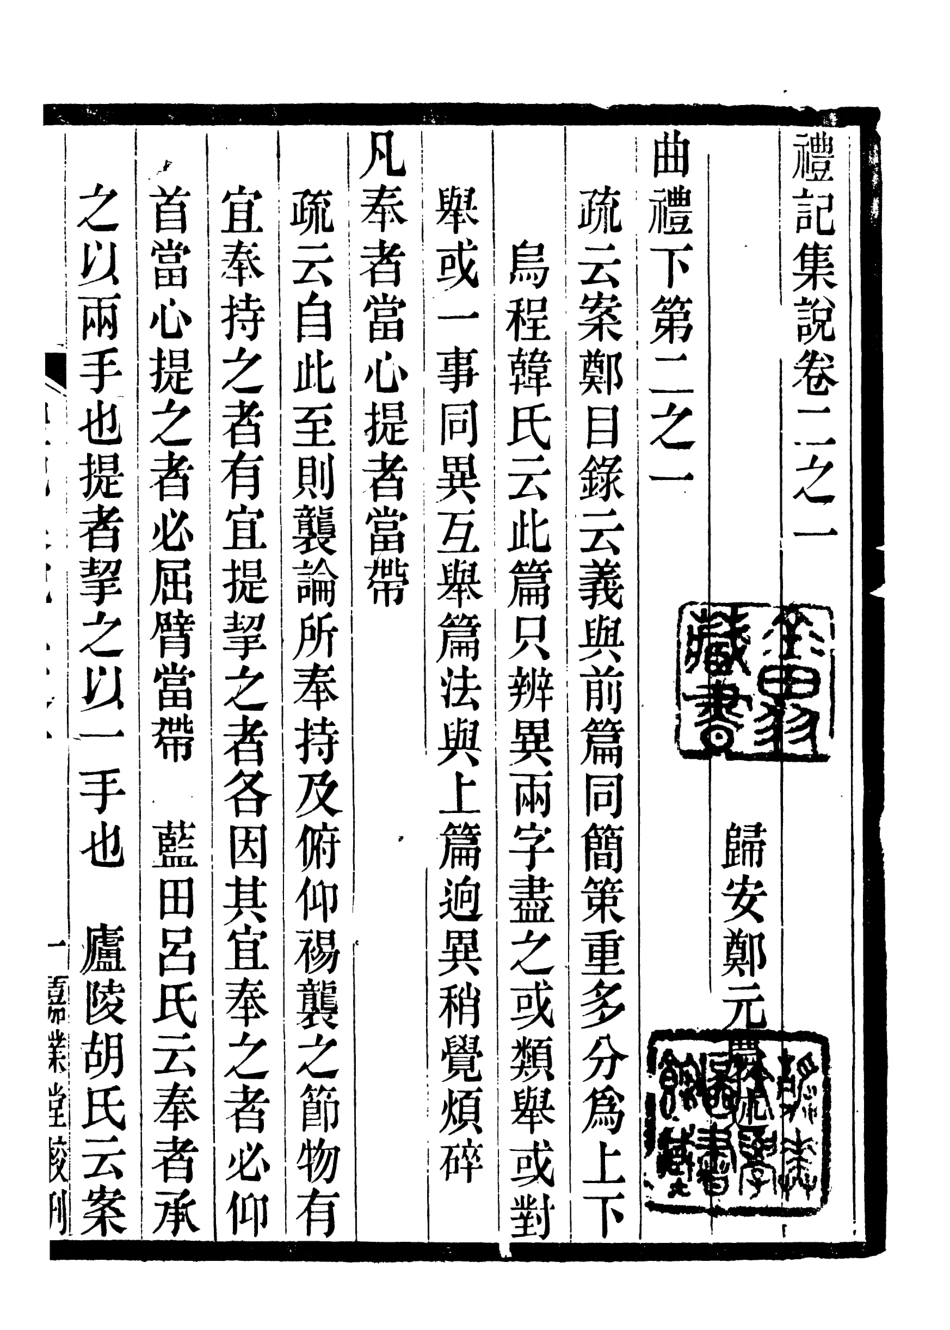 禮記集說卷二之一
歸安鄭元慶述
曲禮下第二之一
疏云案鄭目錄云義與前篇同簡策重多分爲上下
烏程韓氏云此篇只辨異兩字盡之或類舉或對
舉或一事同異互舉篇法與上篇逈異稍覺煩碎
凡奉者當心提者當帶
疏云自此至則襲論所奉持及俯仰裼襲之節物有
宜奉持之者有宜提挈之者各因其宜奉之者必仰
首當心提之者必屈臂當帶　藍田呂氏云奉者承
之以兩手也提者挈之以一手也　廬陵胡氏云案
一 嘉業堂校刊
藏書